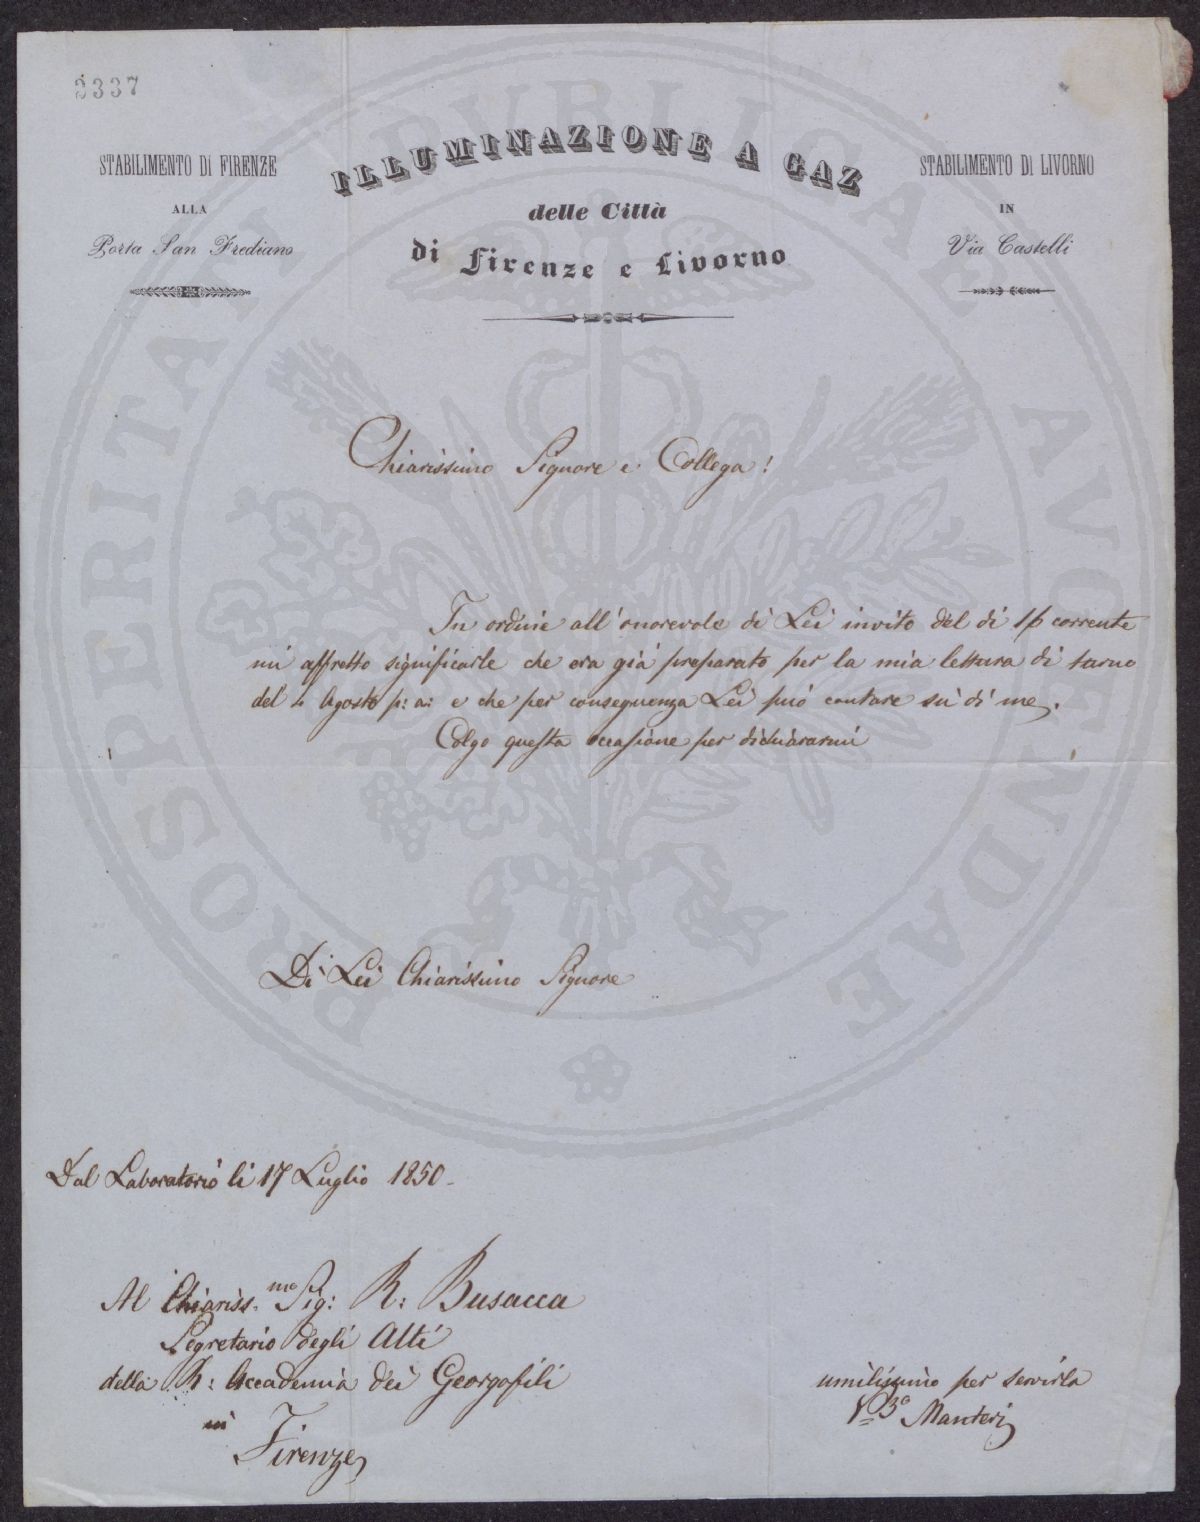 3337
STABILIMENTO DI FIRENZE
ALLA
Porta San Frediano
ILLUMINAZIONE A GAZ
delle Città
di Firenze e Livorno
STABILIMENTO DI LIVORNO
IN
Via Castelli
Chiarissimo Signore e Collega!
In ordine all'onorevole di Lei invito del di 16 corrente
mi affretto significarle che era già preparato per la mia lettura di turno
del 4 Agosto p: a: e che per conseguenza Lei può contare su di me.
Colgo questa occasione per dichiararmi
Di Lei Chiarissimo Signore
Dal Laboratorio li 17 Luglio 1850.
Al Chiariss.mo Sig: R: Busacca
Segretario degli Atti
della R: Accademia dei Georgofili
in
Firenze
umilissimo per servirla
Manteri
PROSPERITATI PVBLICAE AVGENDAE